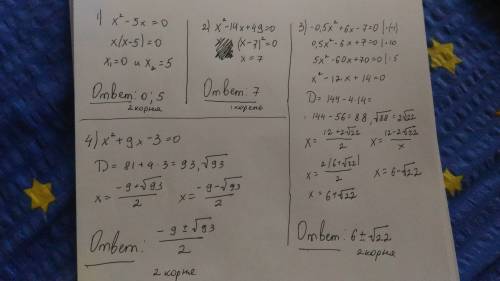 1) x² - 5x = 0
x(x-5) = 0
x₁=0 и x₂=5
Ответ: 0; 5
2 корня
2) x² - 14x + 49 = 0
(x-7)² = 0
x = 7
Ответ: 7
1 корень
3) -0,5x² + 6x - 7 = 0 |·(-1)
0,5x² - 6x + 7 = 0 |·10
5x² - 60x + 70 = 0 |:5
x² - 12x + 14 = 0
D = 144 - 4·14 =
= 144 - 56 = 88, √88 = 2√22
x = (12+2√22)/2 x = (12-2√22)/x
x = 2(6+√22)/2 x = 6-√22
x = 6+√22
Ответ: 6 ± √22
2 корня
4) x² + 9x - 3 = 0
D = 81 + 4·3 = 93, √93
x = (-9+√93)/2 x = (-9-√93)/2
Ответ: (-9 ± √93)/2
2 корня